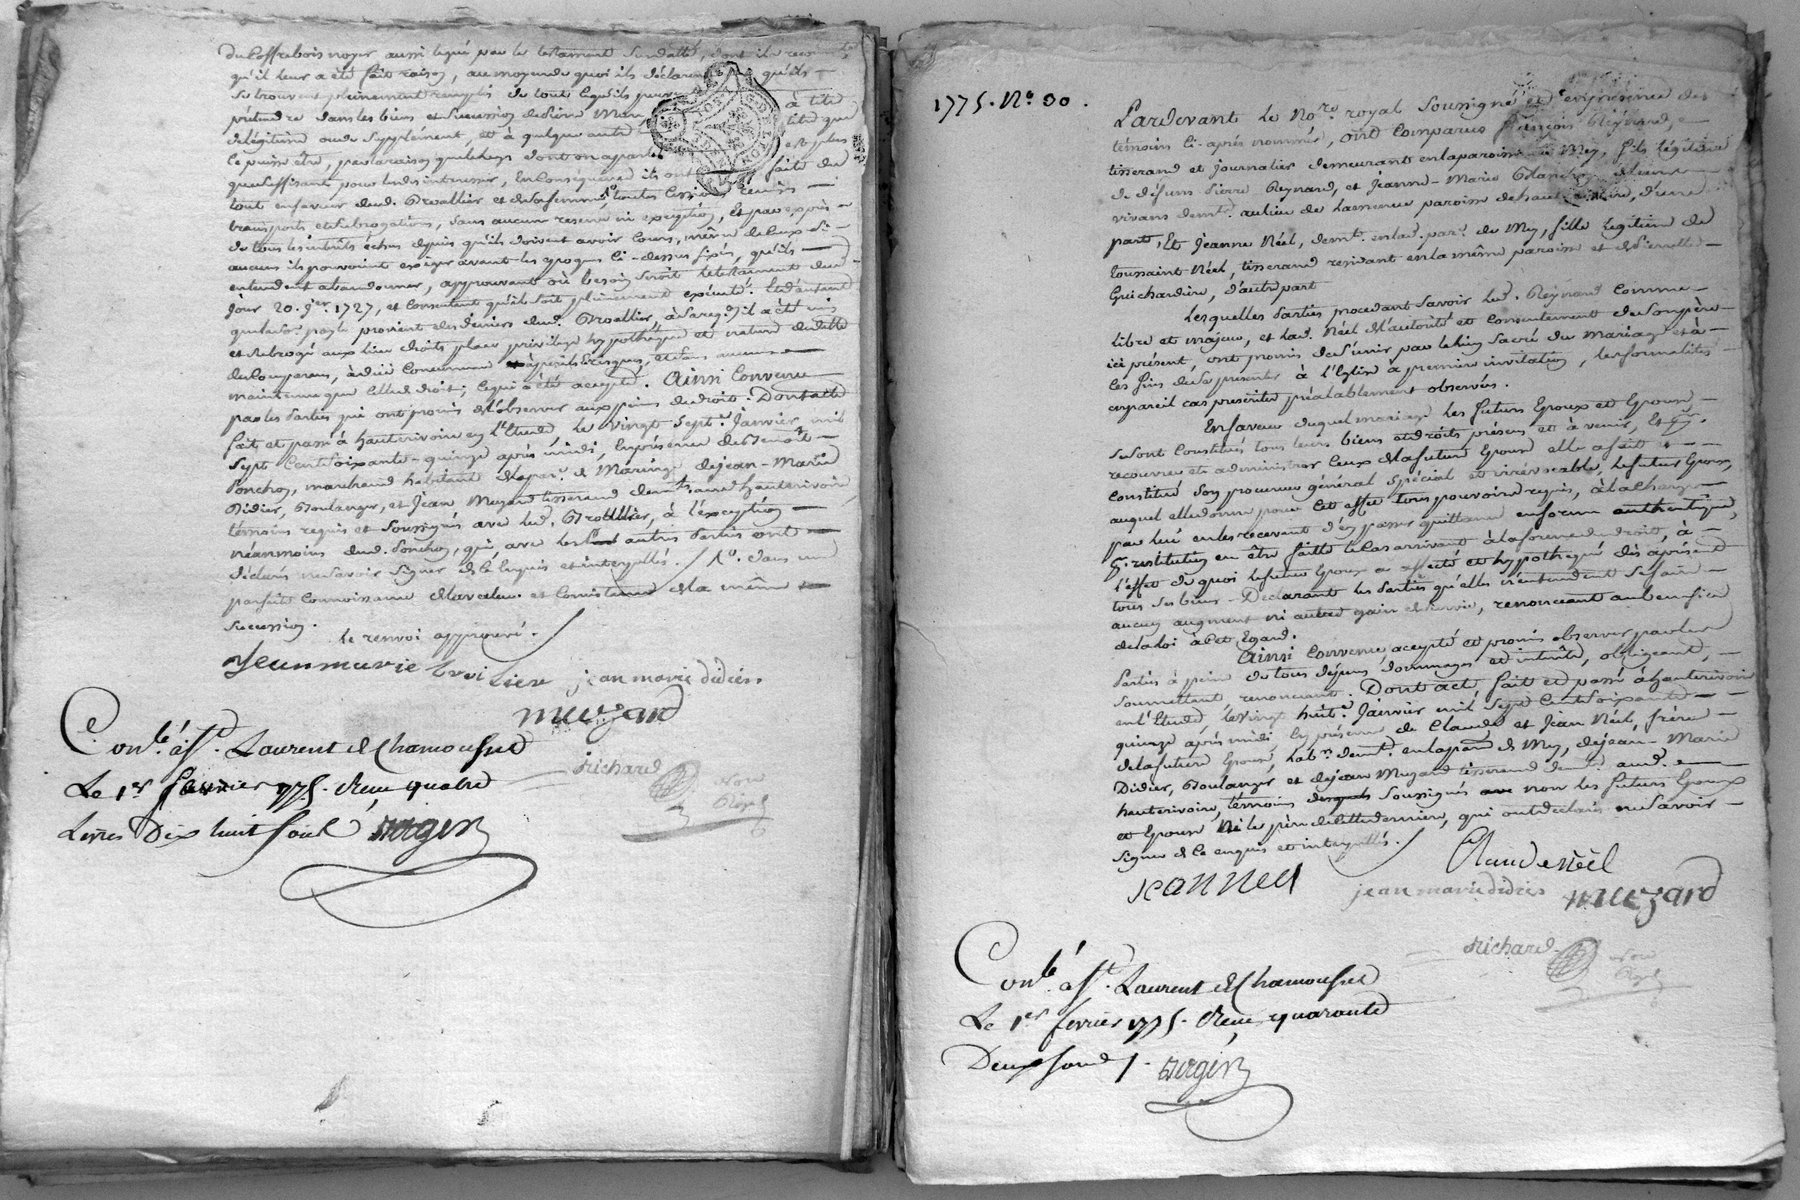 du Coffre bois noyer aussi legué par le testament susdatté, dont ils reconnoissent
qu'il leur a été fait raison, au moyen de quoi ils déclarent qu'ils
se trouvent pleinement remplis de tout ce qu'ils peuvent
prétendre dans les biens et succession de Pierre à titre
de légitime ou de supplément, et à quelque autre titre que
ce puisse être, est plus
que suffisant pour les desinteresser, En Conséquence ils ont fait du
tout en faveur dud. Broallier et de sa femme toutes Cessions, remises
transports et subrogations, sans aucune reserve ni exception, Et par exprès
de tous les intérêts échus depuis qu'ils doivent avoir cours, même de Ceux
aucuns ils pouvoient exiger avant les epoques ci-dessus fixés, qu'ils
entendent abandonner, approuvant où besoin seroit le testament dud.
jour 20. 9.er 1727, et Consentent qu'il soit pleinement exécuté. Et d'autant
que la so.e payée provient des deniers dud. Broallier, à sa req.on il a été mis
et subrogé aux lieu droits place privilege hypothéque et nature de dette
des Comparans, à d'eux Concurrence à périls et risques, et sans aucune
maintenue que celle de droit; ce qui a été accepté. Ainsi Convenu
par les Parties qui ont promis de l'observer aux peines de droit. Dont acte
fait et passé à hauterivoire en l'Etude le vingt sept.e Janvier mil
sept Cent soixante-quinze après midi, En présence de Benoît
Ponchon, marchand habitant de la par.e de Maringe, de jean-Marie
Didier, Boulanger, et Jean Muzard tisserand dem.t aud. hauterivoire,
témoins requis et soussignés avec led. Broallier, à l'exception
néanmoins dud. Ponchon, qui, avec les autres Parties ont
déclaré ne savoir signer de ce Enquis et interpellés. / 1.o dans une
parfaite Connoissance de la valeur et Consistance de la même
succession.
le renvoi approuvé.
Jean marie broi lier jean marie didier
muzard
Con.lé à S.t Laurent de Chamousset richard
Le 1.er fevrier 1775. Reçu quatre Nore
Livres Dix huit sols Royal
1775. N.o 30.
Pardevant le No.re royal soussigné et en présence des
témoins ci-après nommés, ont Comparus François Reynard,
tisserand et journalier demeurant en la paroisse de Mey, fils légitime
de défunt Pierre Reynard, et Jeanne-Marie
vivans dem.t au lieu de la meme paroisse de hauterivoire, d'une
part, Et Jeanne Néel, dem.t en lad. par.e de Mey, fille legitime de
toussaint Néel, tisserand residant en la même paroisse et de Pierrette
Guichardière, d'autre part
Lesquelles Parties procedant savoir led. Reynard Comme
libre et majeur, et lad. Néel de l'autorité et Consentement de son père
ici présent, ont promis de s'unir par le lien sacré du Mariage et à
Ces fins de se presenter à l'Eglise a premiere invitation, les formalités
en pareil cas prescrites préalablement observées.
En faveur duquel mariage les futurs Epoux et Epouse
se sont Constitués tous leurs biens et droits présens et à venir, Et p.r
recouvrer et administrer Ceux de la future Epouse elle a fait et
constitué son procureur général spécial et irrévocable, le futur Epoux,
auquel elle donne pour cet effet tous pouvoirs requis, à la charge
par lui en les recevant d'en passer quittance en forme authentique,
p.r restitution en être faite le Cas arrivant à la forme de droit, à
l'effet de quoi le futur Epoux a affecté et hypothéqué dès à présent
tous ses biens. Declarant les Parties qu'elles n'entendent se faire
aucun augment ni autre gain de survie, renonceant au benefice
de la loi à cet Egard.
Ainsi Convenu, accepté et promis observer par les
Parties à peine de tous dépens dommages et intérêts, obligeant,
soumettant renonceant. Dont acte fait et passé à hauterivoire
en l'Etude, le vingt huit.e Janvier mil Sept Cent soixante
quinze après midi En présence de Claude et Jean Néel, frères
de la future Epouse, hab.ns dem.t en la par.e de Mey, de jean-Marie
Didier, Boulanger et de jean Muzard tisserand dem.t aud.
hauterivoire, témoins soussignés non les futurs Epoux
et Epouse Ni le père de cette derniere, qui ont déclaré ne savoir
signer de ce enquis et interpellés.
jean neel Claude Néel
jean marie didier muzard
richard Nore
Con.lé à S.t Laurent de Chamousset Royal
Le 1.er fevrier 1775. Reçu quarante
Deux sous